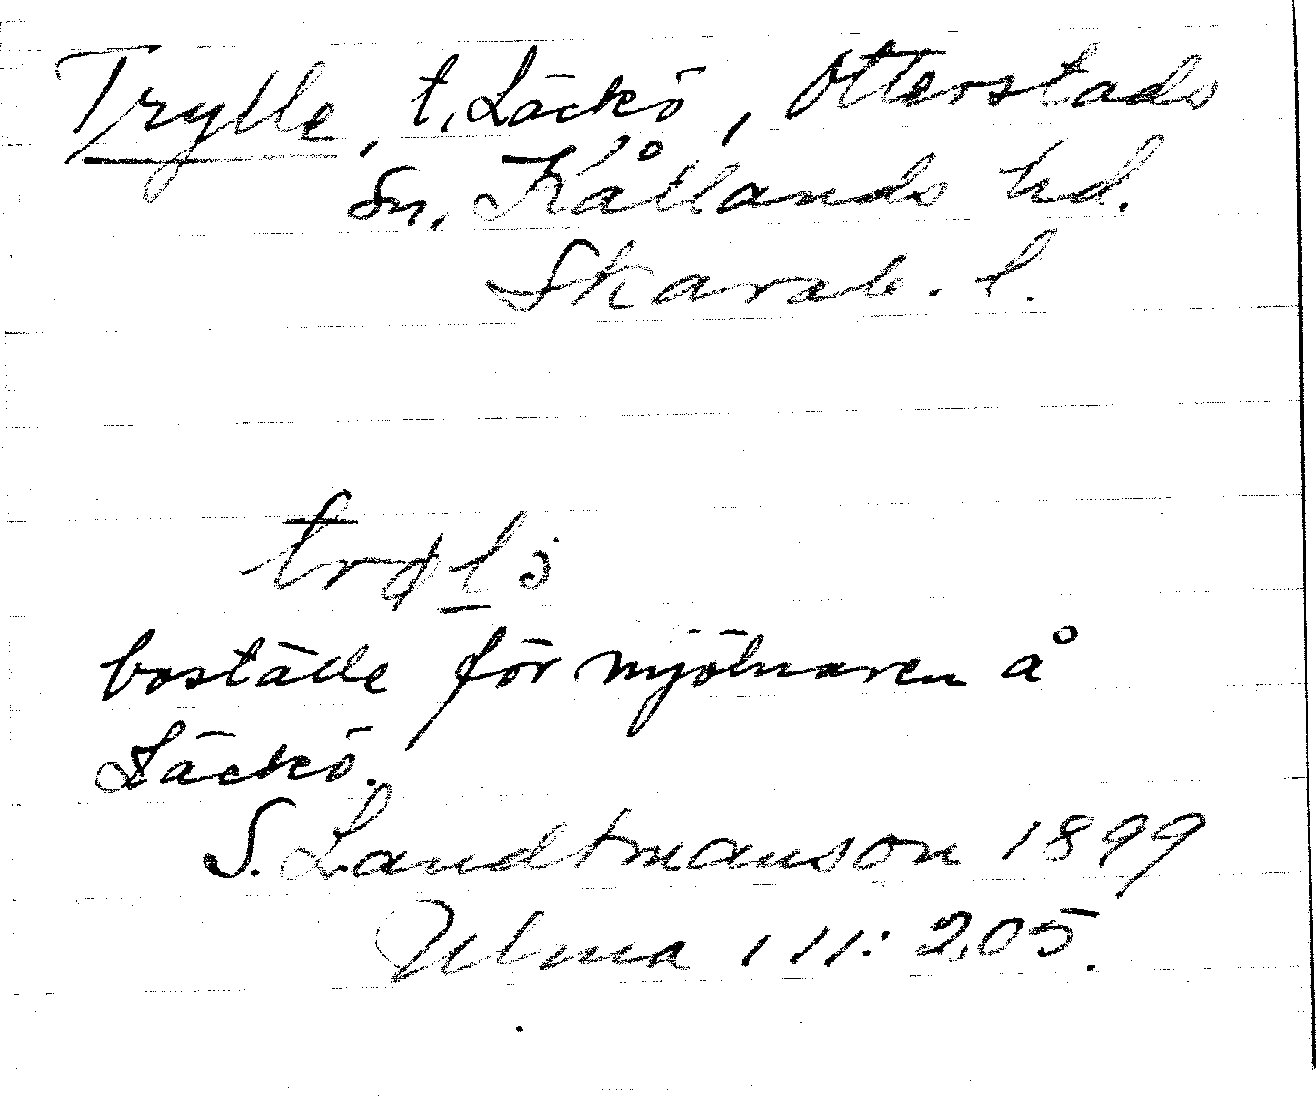 Trylle, t. Läckö, Otterstads
Sn. Kållands hd.
Skarab. l.
boställe för mjölnaren å
Läckö.
S. Landtmanson 1899
Ulma 111:205.